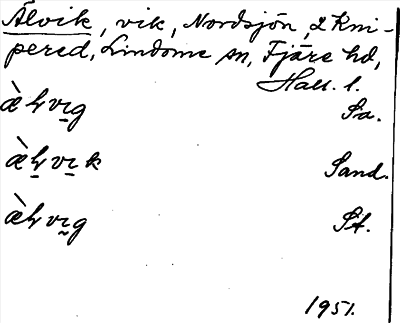 Älvik, vik, Nordsjön, 2 km i-
pered, Lindome sn, Fjäre hd,
Hall. l.
æ̀ƚvı̠g Sa.
æ̀ƚ̠vı̠k Sand.
æ̀ƚvı̰g St.
1951.